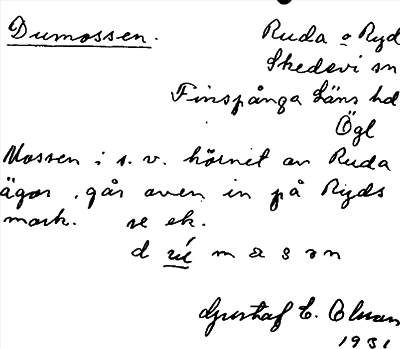 Dumossen.
Ruda o Ryd
Skedevi sn
Finspånga Läns hd
Ögl
Mossen i s.v. hörnet av Ruda
ägor, går även in på Ryds
mark. se ek.
d m s n
Gustaf E. Olsson
1931